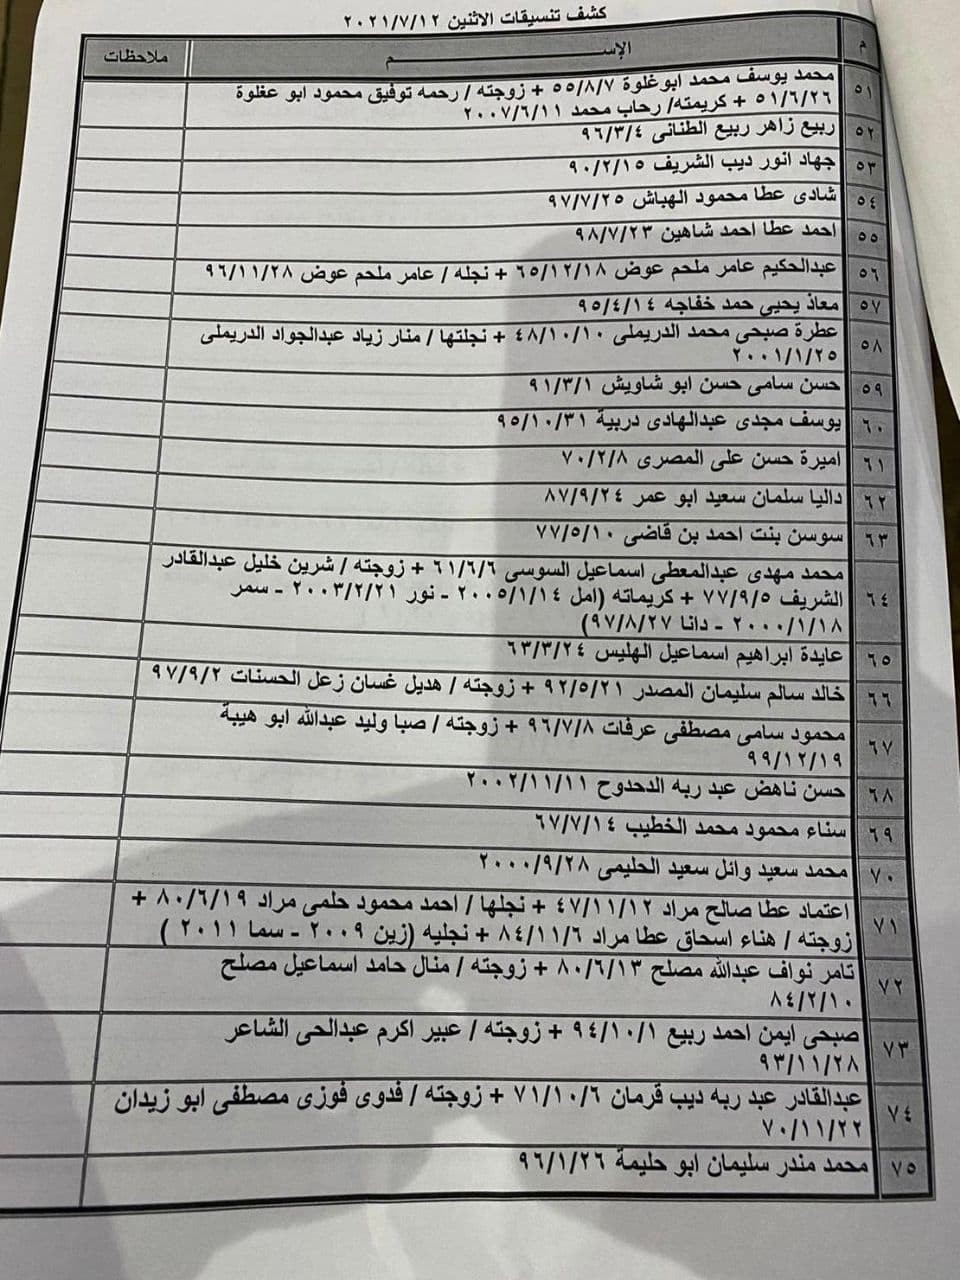 كشف تنسيقات الاثنين ٢٠٢١/٧/١٢
م الإســـــــــم ملاحظات
٥١ محمد يوسف محمد ابوغلوة ٥٥/٨/٧ + زوجته / رحمه توفيق محمود ابو عغلوة
٥١/٦/٢٦ + كريمته/ رحاب محمد ٢٠٠٧/٦/١١
٥٢ ربيع زاهر ربيع الطنانى ٩٦/٣/٤
٥٣ جهاد انور ديب الشريف ٩٠/٢/١٥
٥٤ شادى عطا محمود الهباش ٩٧/٧/٢٥
٥٥ احمد عطا احمد شاهين ٩٨/٧/٢٣
٥٦ عبدالحكيم عامر ملحم عوض ٦٥/١٢/١٨ + نجله / عامر ملحم عوض ٩٦/١١/٢٨
٥٧ معاذ يحيى حمد خفاجه ٩٥/٤/١٤
٥٨ عطرة صبحى محمد الدريملى ٤٨/١٠/١٠ + نجلتها / منار زياد عبدالجواد الدريملى
٢٠٠١/١/٢٥
٥٩ حسن سامى حسن ابو شاويش ٩١/٣/١
٦٠ يوسف مجدى عبدالهادى دربية ٩٥/١٠/٣١
٦١ اميرة حسن على المصرى ٧٠/٢/٨
٦٢ داليا سلمان سعيد ابو عمر ٨٧/٩/٢٤
٦٣ سوسن بنت احمد بن قاضى ٧٧/٥/١٠
٦٤ محمد مهدى عبدالمعطى اسماعيل السوسى ٦١/٦/٦ + زوجته / شرين خليل عبدالقادر
الشريف ٧٧/٩/٥ + كريماته (امل ٢٠٠٥/١/١٤ - نور ٢٠٠٣/٢/٢١ - سمر
٢٠٠٠/١/١٨ - دانا ٩٧/٨/٢٧)
٦٥ عايدة ابراهيم اسماعيل الهليس ٦٣/٣/٢٤
٦٦ خالد سالم سليمان المصدر ٩٢/٥/٢١ + زوجته / هديل غسان زعل الحسنات ٩٧/٩/٢
٦٧ محمود سامى مصطفى عرفات ٩٦/٧/٨ + زوجته / صبا وليد عبدالله ابو هيبة
٩٩/١٢/١٩
٦٨ حسن ناهض عبد ربه الدحدوح ٢٠٠٢/١١/١١
٦٩ سناء محمود محمد الخطيب ٦٧/٧/١٤
٧٠ محمد سعيد وائل سعيد الحليمى ٢٠٠٠/٩/٢٨
٧١ اعتماد عطا صالح مراد ٤٧/١١/١٢ + نجلها / احمد محمود حلمى مراد ٨٠/٦/١٩ +
زوجته / هناء اسحاق عطا مراد ٨٤/١١/٦ + نجليه (زين ٢٠٠٩ - سما ٢٠١١ )
٧٢ تامر نواف عبدالله مصلح ٨٠/٦/١٣ + زوجته / منال حامد اسماعيل مصلح
٨٤/٢/١٠
٧٣ صبحى ايمن احمد ربيع ٩٤/١٠/١ + زوجته / عبير اكرم عبدالحى الشاعر
٩٣/١١/٢٨
٧٤ عبدالقادر عبد ربه ديب قرمان ٧١/١٠/٦ + زوجته / فدوى فوزى مصطفى ابو زيدان
٧٠/١١/٢٢
٧٥ محمد منذر سليمان ابو حليمة ٩٦/١/٢٦